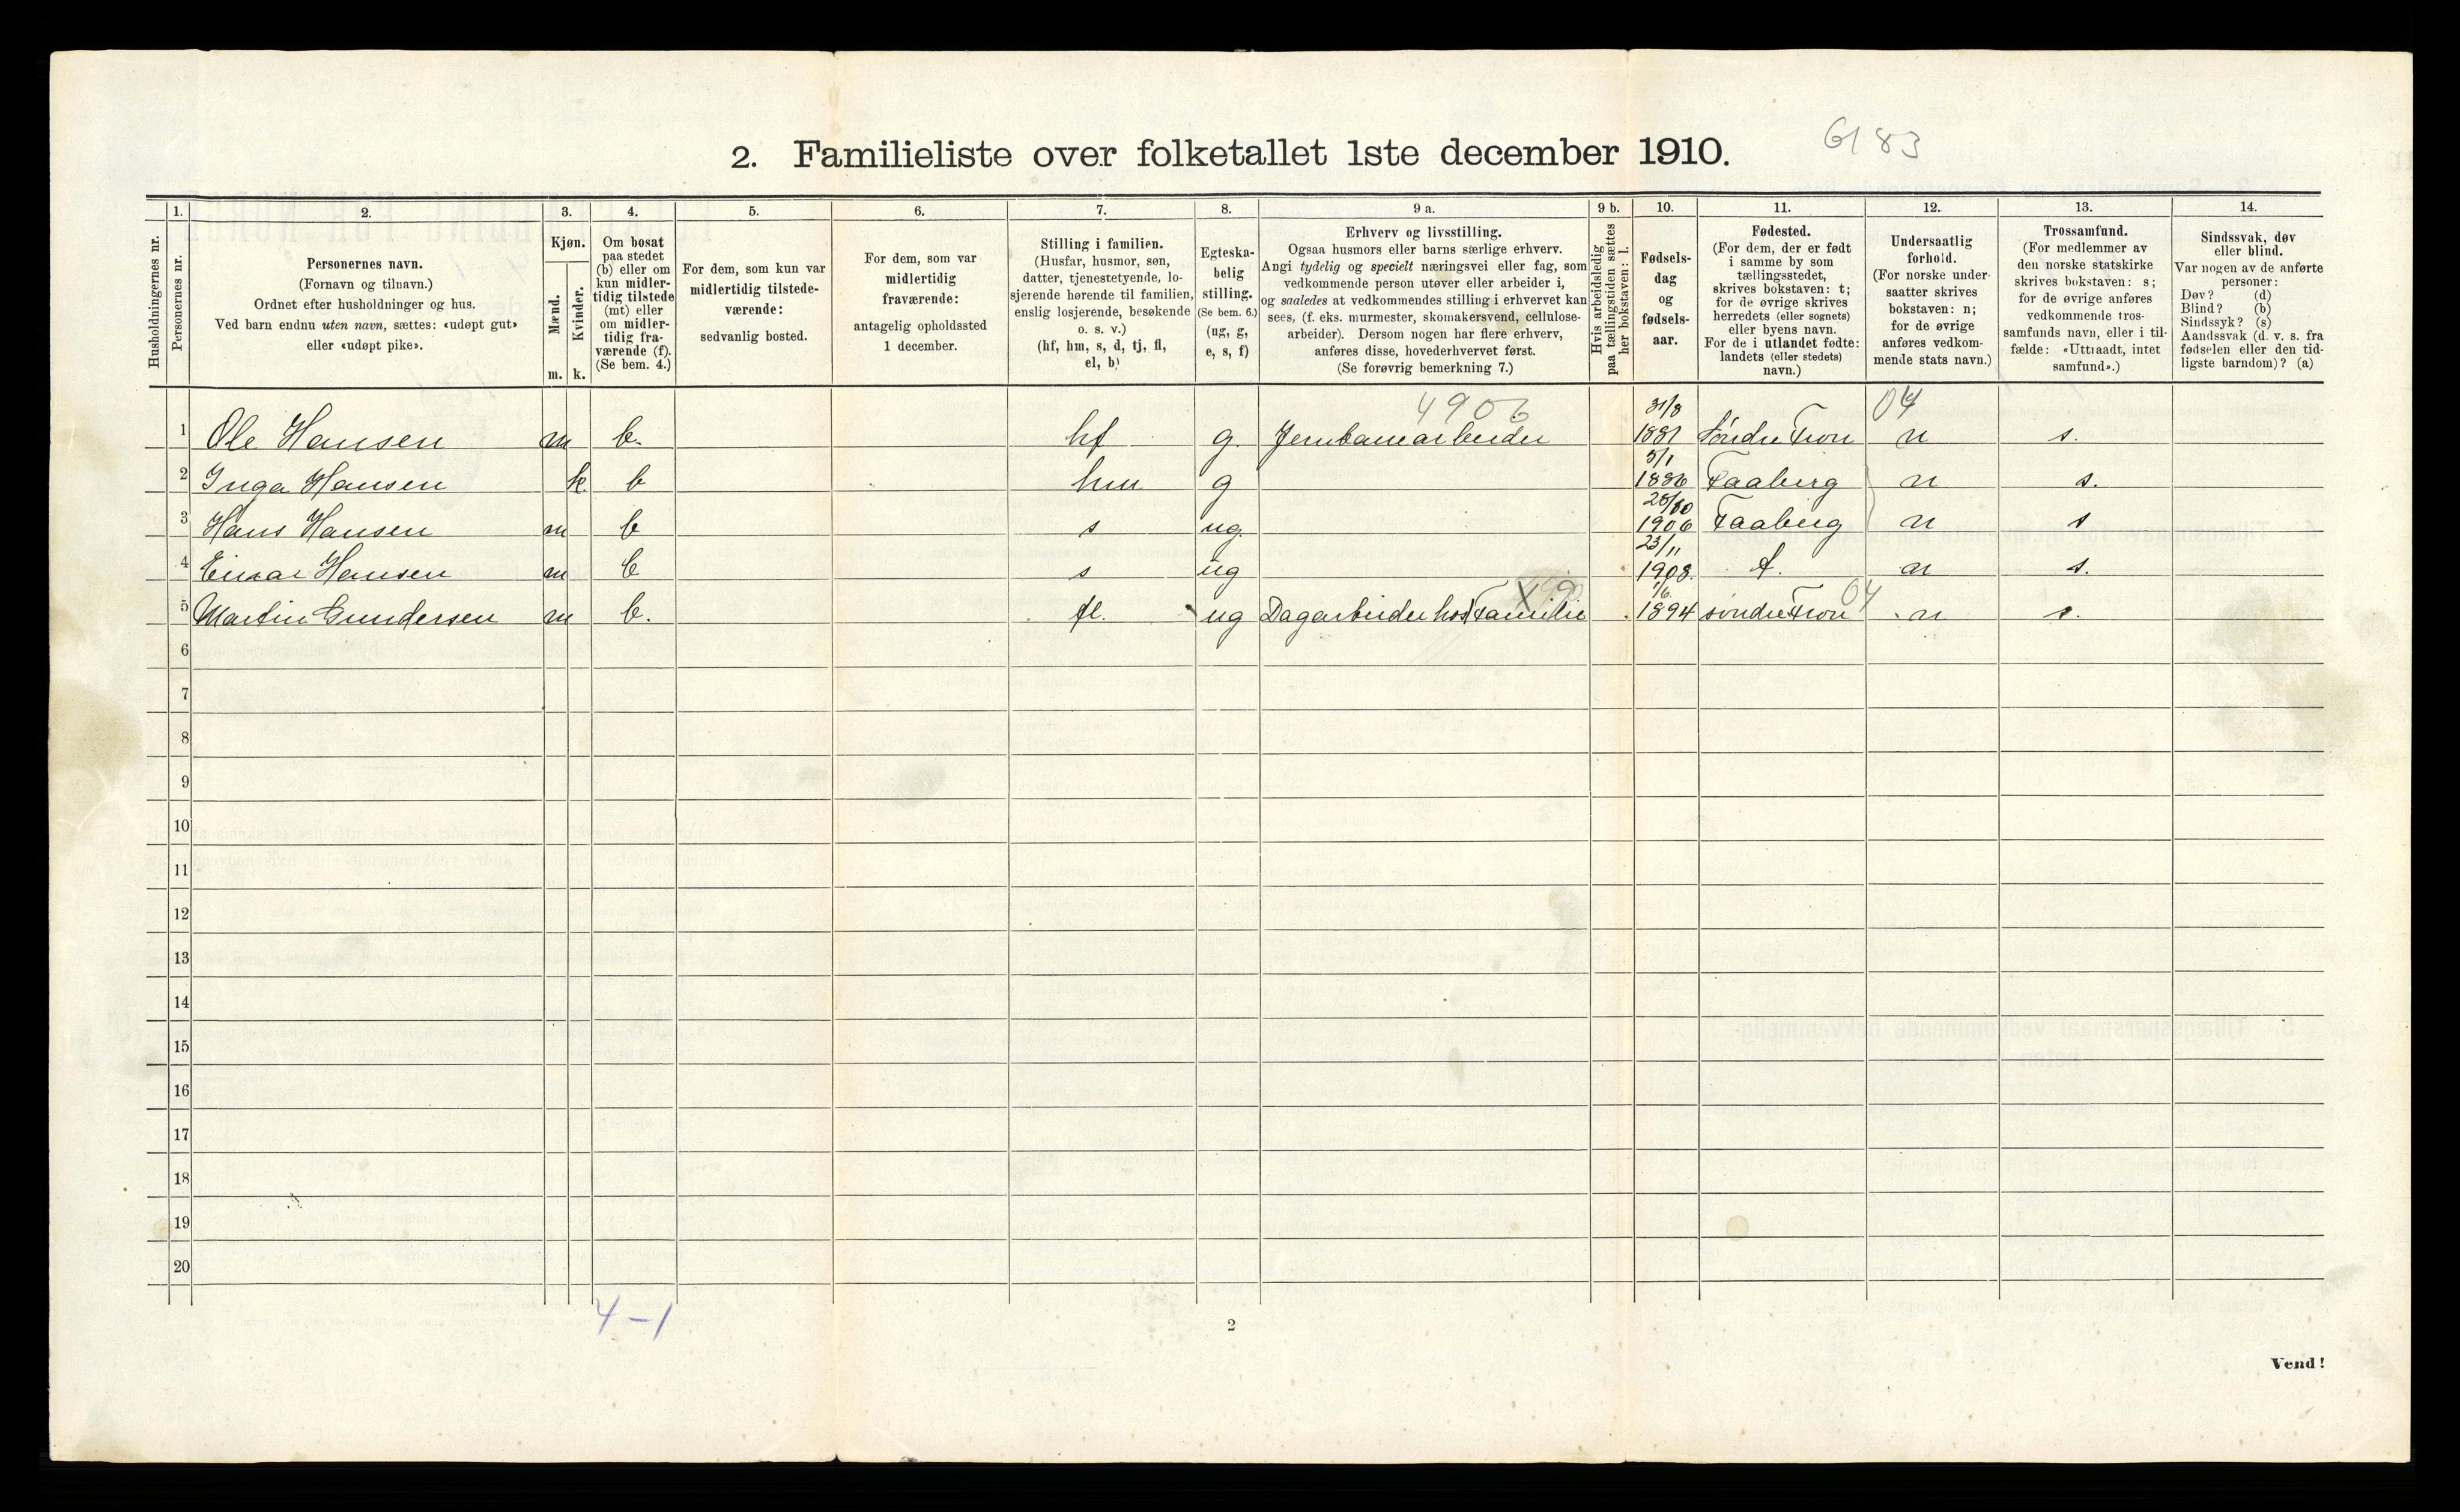 2. Familieliste over folketallet 1ste december 1910.
6183
Husholdningernes nr.
1.
Personernes nr.
2.
Personernes navn.
(Fornavn og tilnavn.)
Ordnet efter husholdninger og hus.
Ved barn endnu uten navn, sættes: «udøpt gut»
eller «udøpt pike».
3.
Kjøn.
Mænd.
Kvinder.
m. k.
4.
Om bosat
paa stedet
(b) eller om
kun midler-
tidig tilstede
(mt) eller
om midler-
tidig fra-
værende (f).
(Se bem. 4.)
5.
For dem, som kun var
midlertidig tilstede-
værende:
sedvanlig bosted.
6.
For dem, som var
midlertidig
fraværende:
antagelig opholdssted
1 december.
7.
Stilling i familien.
(Husfar, husmor, søn,
datter, tjenestetyende, lo-
sjerende hørende til familien,
enslig losjerende, besøkende
o. s. v.)
(hf, hm, s, d, tj, fl,
el, b)
8.
Egteska-
belig
stilling.
(Se bem. 6.)
(ug, g,
e, s, f)
9 a.
Erhverv og livsstilling.
Ogsaa husmors eller barns særlige erhverv.
Angi tydelig og specielt næringsvei eller fag, som
vedkommende person utøver eller arbeider i,
og saaledes at vedkommendes stilling i erhvervet kan
sees, (f. eks. murmester, skomakersvend, cellulose-
arbeider). Dersom nogen har flere erhverv,
anføres disse, hovederhvervet først.
(Se forøvrig bemerkning 7.)
9 b.
Hvis arbeidsledig
paa tællingstiden sættes
her bokstaven: l.
10.
Fødsels-
dag
og
fødsels-
aar.
11.
Fødested.
(For dem, der er født
i samme by som
tællingsstedet,
skrives bokstaven: t;
for de øvrige skrives
herredets (eller sognets)
eller byens navn.
For de i utlandet fødte:
landets (eller stedets)
navn.)
12.
Undersaatlig
forhold.
(For norske under-
saatter skrives
bokstaven: n;
for de øvrige
anføres vedkom-
mende stats navn.)
13.
Trossamfund.
(For medlemmer av
den norske statskirke
skrives bokstaven: s;
for de øvrige anføres
vedkommende tros-
samfunds navn, eller i til-
fælde: «Uttraadt, intet
samfund».)
14.
Sindssvak, døv
eller blind.
Var nogen av de anførte
personer:
Døv? (d)
Blind? (b)
Sindssyk? (s)
Aandssvak (d. v. s. fra
fødselen eller den tid-
ligste barndom)? (a)
4906 31/8 04
1 Ole Hansen m b. hf g. Jernbanearbeider 1881 Søndre Fron n s.
5/1
2 Inga Hansen k. b hm g 1886 Faaberg n s.
3 Hans Hansen m b s ug. 1906 Faaberg n s
23/11
4 Einar Hansen m b s ug 1908. t. n s.
1/6. 04
5 Martin Gundersen m b. fl. ug Dagarbeider hos Familie 1894 søndre Fron n s.
6
7
8
9
10
11
12
13
14
15
16
17
18
19
20
4-1
2
Vend!